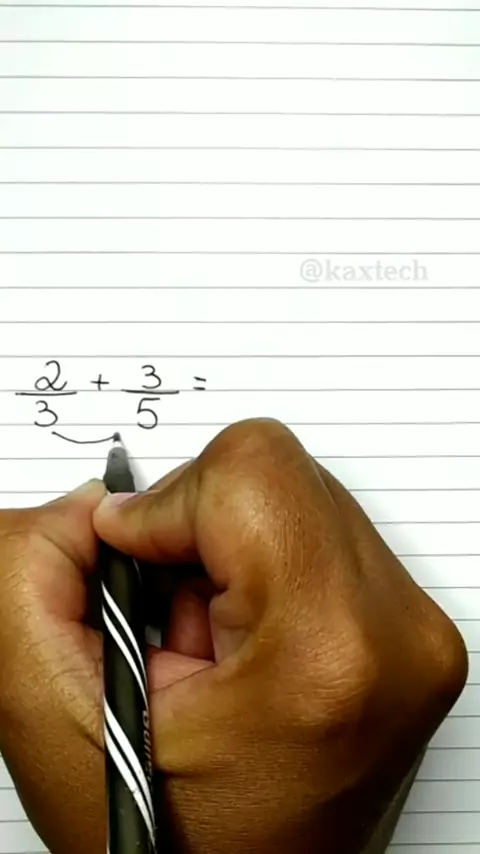 @kaxtech
2/3 + 3/5 =